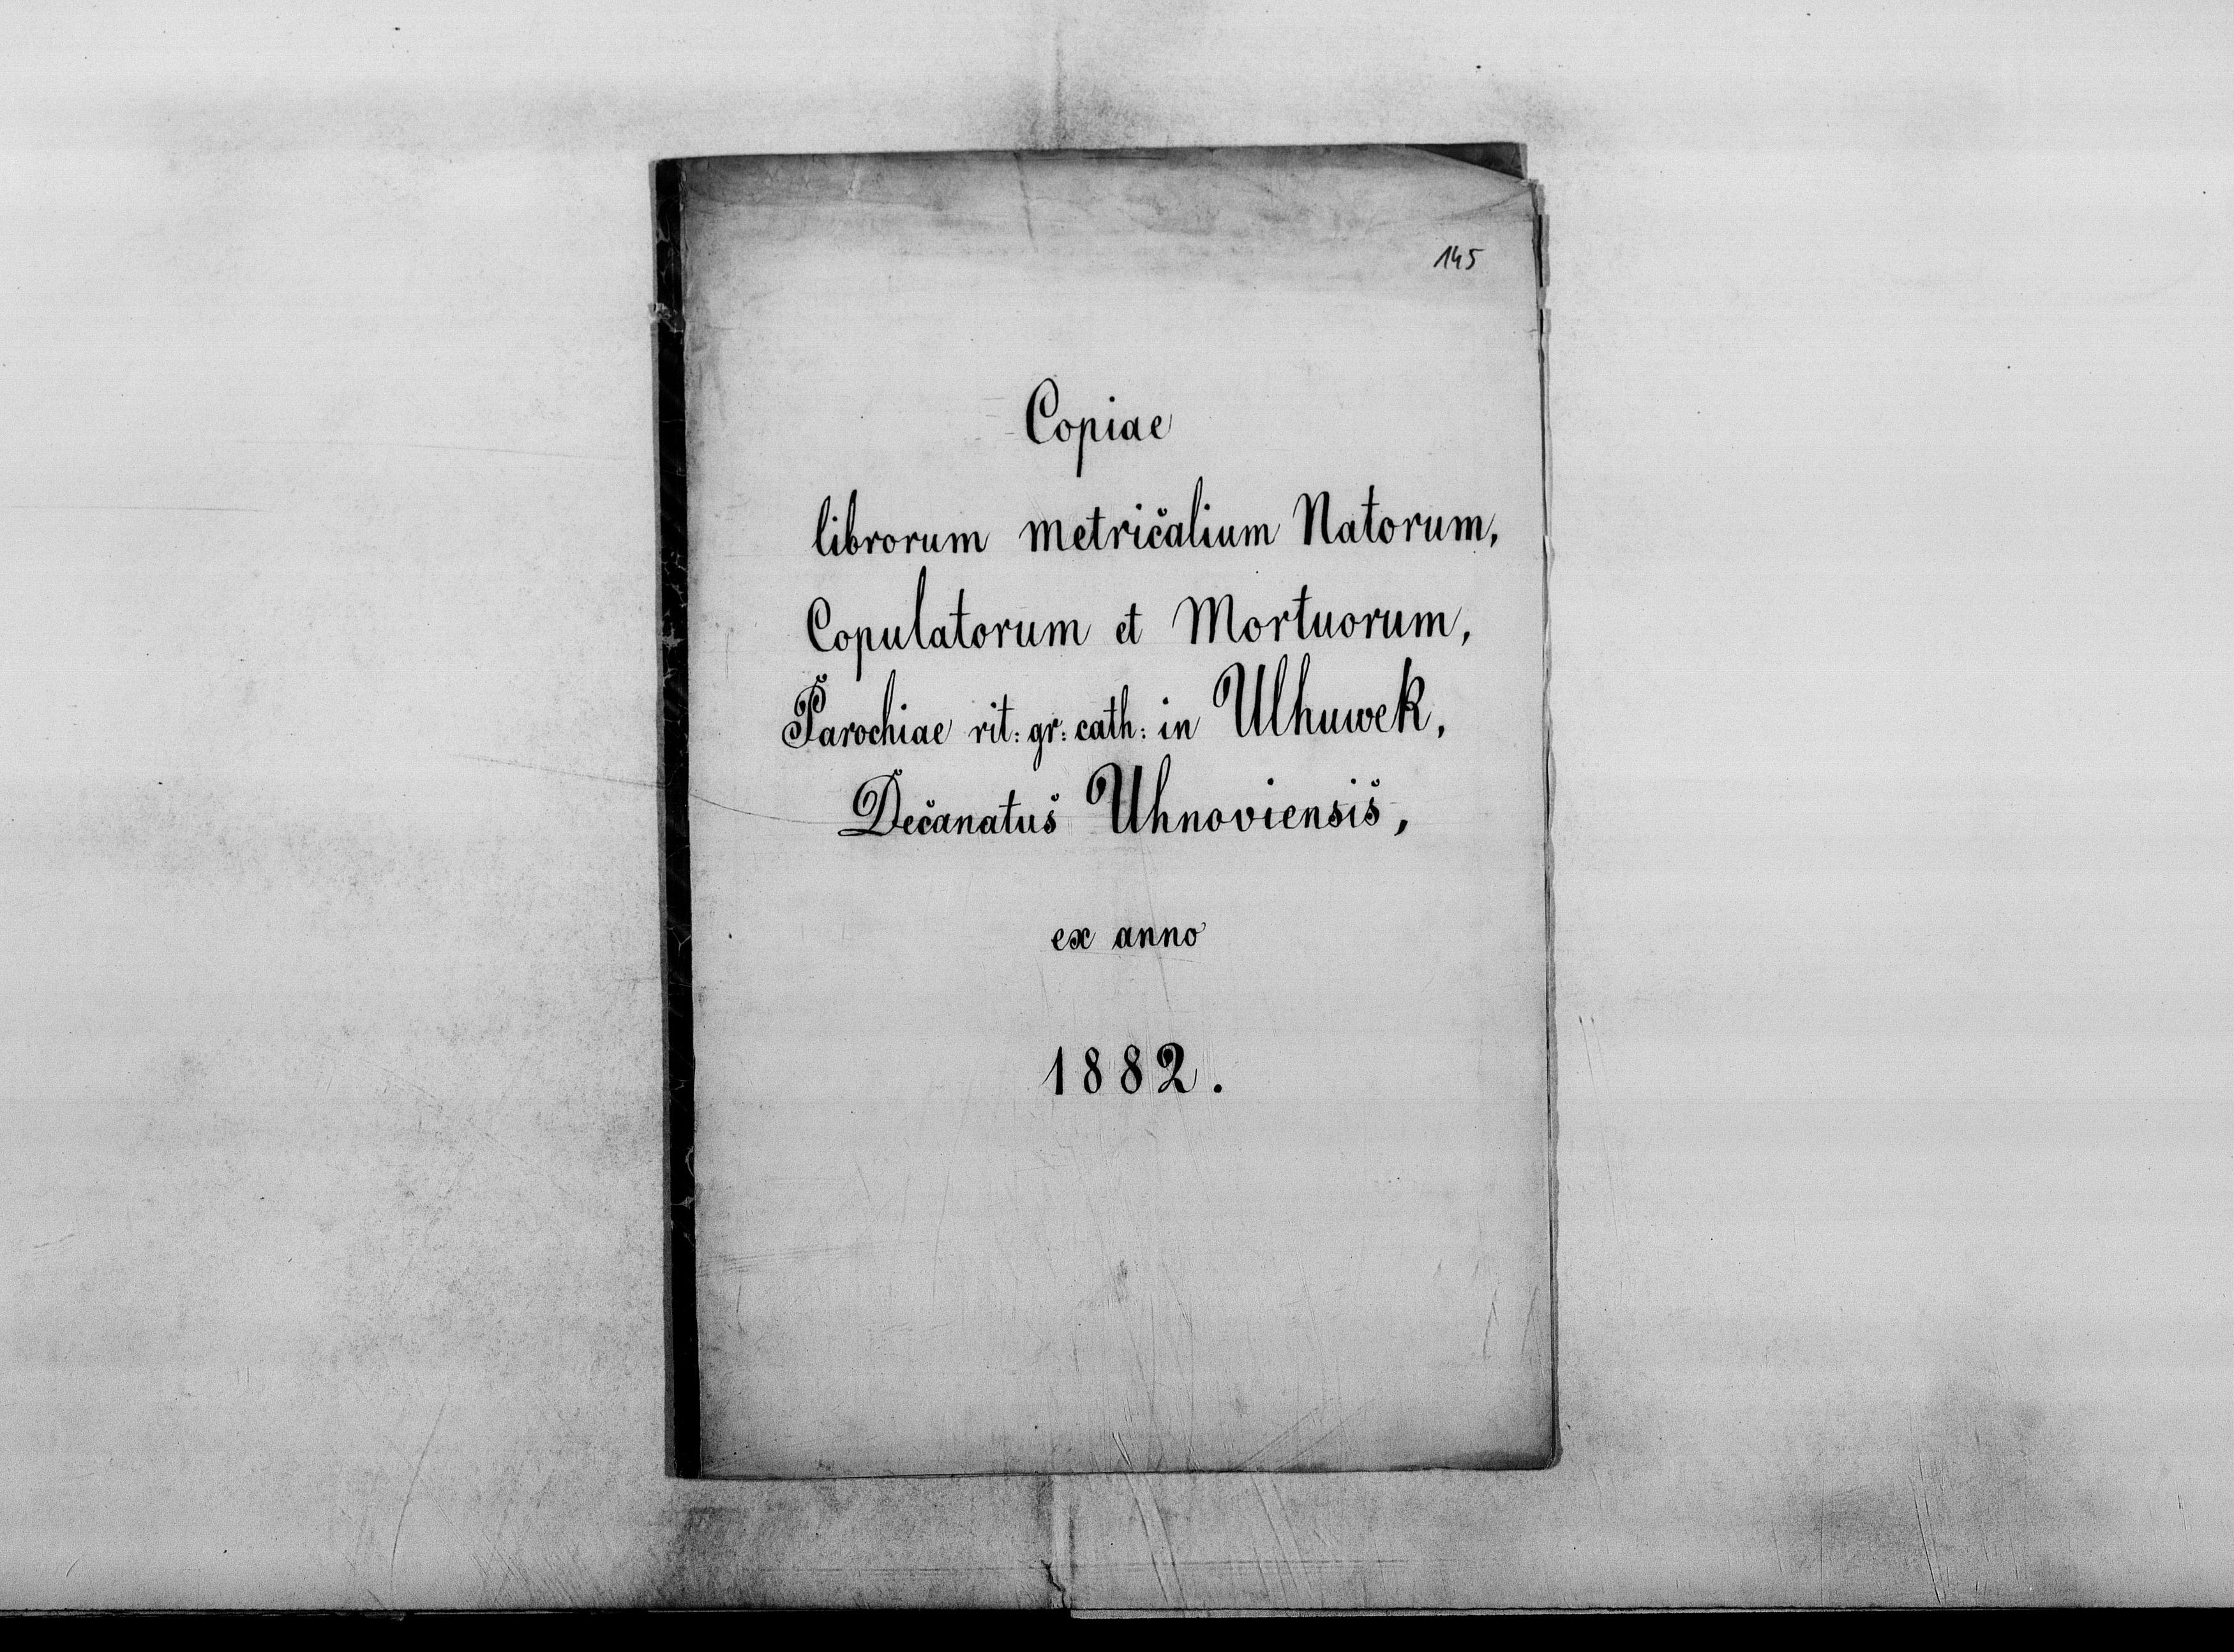 145
Copiae
librorum metričalium Natorum,
Copulatorum et Mortuorum,
Parochiae rit: gr: cath: in Ulhuwek,
Dečanatuš Uhnoviensiš,
ex anno
1882.